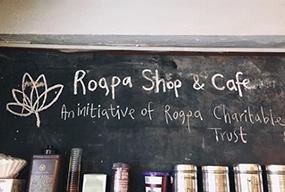 Rogpa Shop & Cafe
An initiative of Rogpa Charitable
Trust